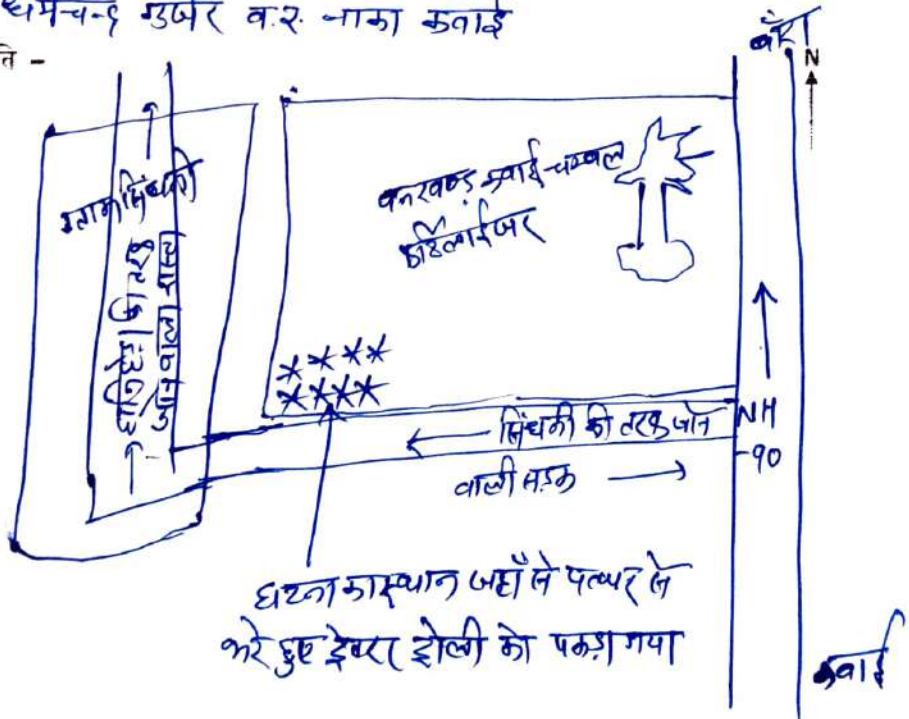 धर्मचन्द गुर्जर व.र. नाका कवाई
बाँरा
N
ग्राम सिंधकी
की तरफ
जाने वाला रास्ता
वनखण्ड कवाई-चम्बल
फर्टिलाईजर
सिंधकी की तरफ जाने
वाली सड़क
NH
-90
घटना का स्थान जहाँ से पत्थर से
भरे हुए ट्रेक्टर ट्रोली को पकड़ा गया
कवाई